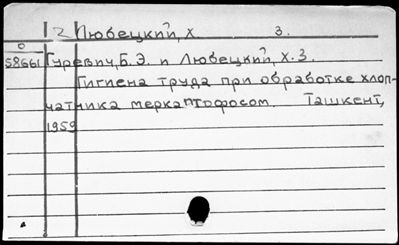 2 Любецкий, Х. З.
0
58661 Гуревич, Б. Э. и Любецкий, Х. З.
Гигиена труда при обработке хлоп-
чатника меркаптофосом. Ташкент,
1959